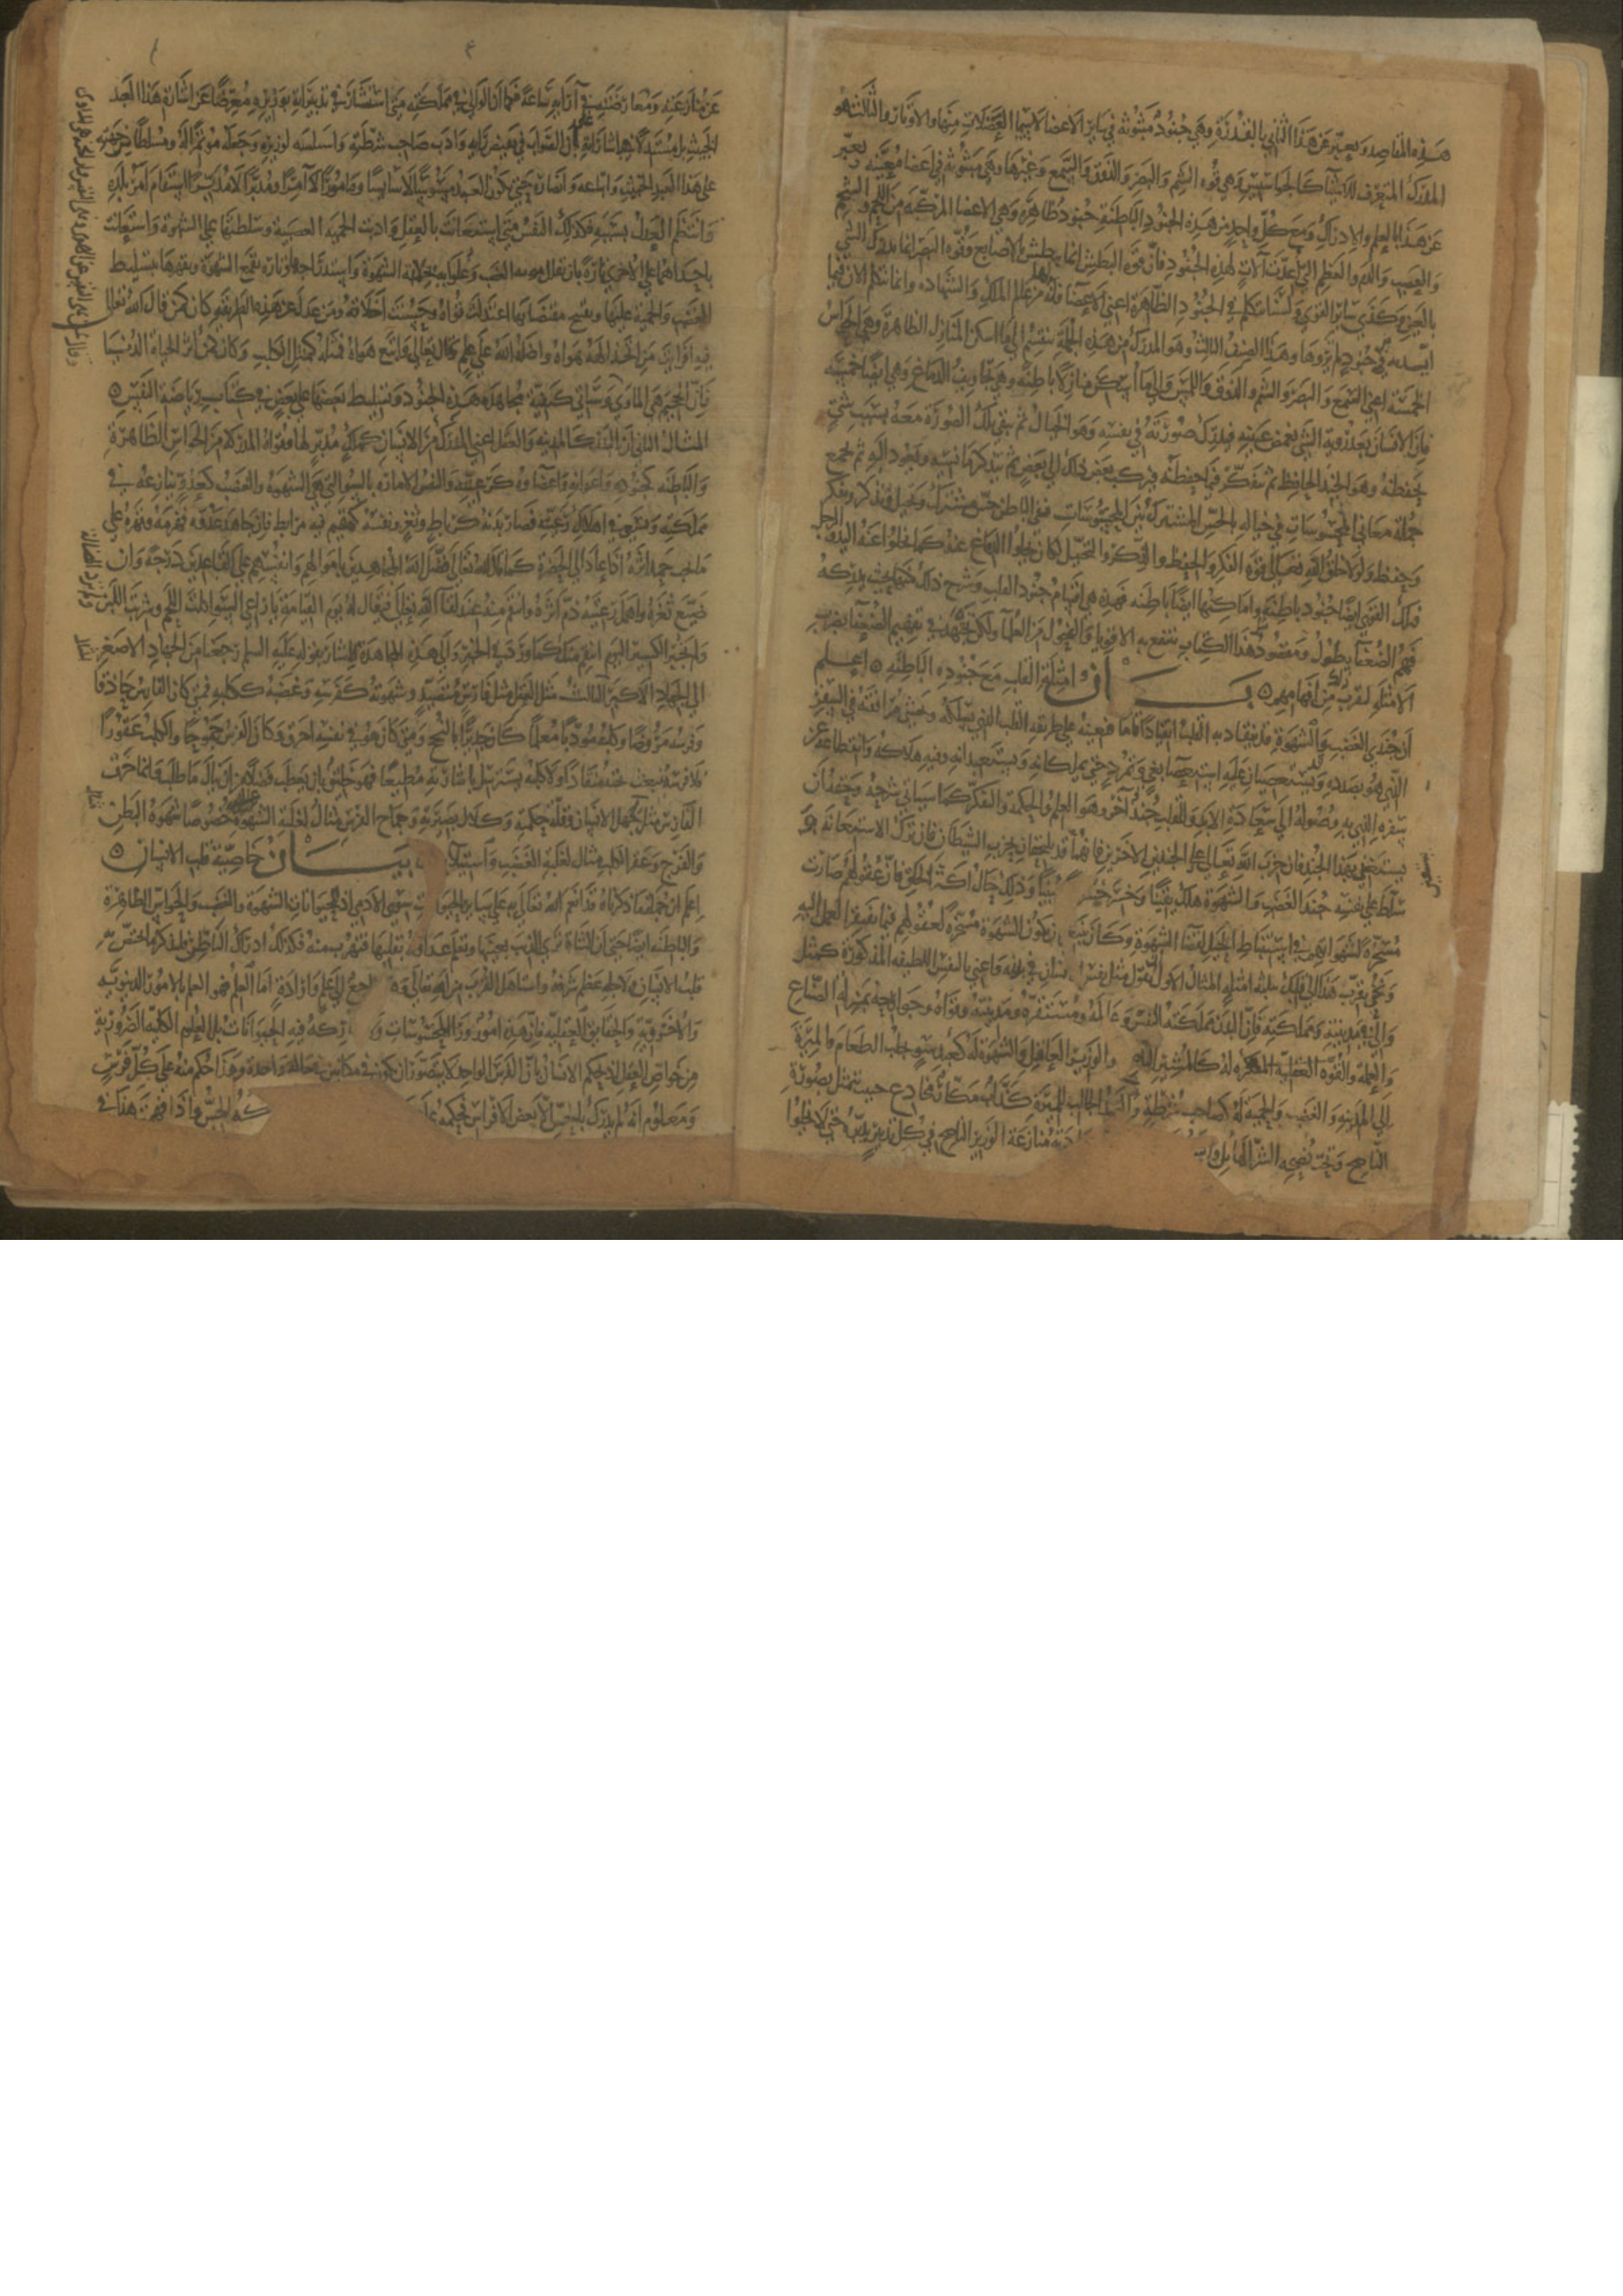 هذه المقاصد ويعبر عن هذا الثاني بالقدرة وهي جنود مبثوثة في سائر الاعضا لا سيما العضلات منها والاوتار والثالث هو
المدرك المتعرف للاشيا كالجواسيس وهي قوة الشم والبصر والذوق والسمع وغيرها وهي مبثوثة في اعضا معينة ويعبر
عن هذا بالعلم والادراك ومع كل واحد من هذه الجنود الباطنة جنود ظاهرة وهي الاعضا المركبة من اللحم والشحم
والعصب والدم والعظم التي اعدت آلات لهذه الجنود فان قوة البطش انما يبطش بالاصابع وقوة البصر انما يدرك الشي
بالعين وكذى سائر القوى ولسنا نتكلم في الجنود الظاهرة اعني الاعضا فانها من عالم الملك والشهادة وانما نتكلم الان فيما
ايد به من جنود لم تروها وهذا الصنف الثالث وهو المدرك من هذه الجملة ينقسم الى ما اسكن المنازل الظاهرة وهي الحواس
الخمسة اعني السمع والبصر والشم والذوق واللمس والى ما اسكن منازل باطنة وهي تجاويف الدماغ وهي ايضا خمسة
فان الانسان بعد روية الشي يغمض عينيه فيدرك صورته في نفسه وهو الخيال ثم تبقى تلك الصورة معه بسبب شي
يحفظه وهو الجند الحافظ ثم يتفكر فيما حفظه فيركب بعض ذلك الى بعض ثم يتذكر ما نسيه ويعود اليه ثم يجمع
جملة معاني المحسوسات في خياله بالحس المشترك بين المحسوسات ففي الباطن حس مشترك وتخيل وتذكر وتفكر
وحفظ ولولا خلق الله تعالى قوة الفكر والحفظ والذكر والتخيل لكان يخلو الدماغ عنه كما يخلوا عنه اليد والرجل
فتلك القوى ايضا جنود باطنة واماكنها ايضا باطنة فهذه هي اقسام جنود القلب وشرح ذلك بحيث يدركه
فهم الضعفا يطول ومقصود هذا الكتاب ان ينتفع به الاقويا والفحول من العلما ولكن نجتهد في تفهيم الضعفا بضرب
الامثلة ليقرب ذلك من افهامهم بيان امثلة القلب مع جنوده الباطنة اعلم
ان جندي الغضب والشهوة قد ينقادان للقلب انقيادا تاما فيعينه على طريقه الذي يسلكه وتحسن مرافقته في السفر
الذي هو بصدده وقد يستعصيان عليه استعصا بغي وتمرد حتى يملكانه ويستعبدانه وفيه هلاكه وانقطاعه عن
سفره الذي به وصوله الى سعادة الابد وللقلب جند آخر وهو العلم والحكمة والتفكر كما سياتي شرحه وحقه ان
يستعين بهذا الجند فانه حزب الله تعالى على الجندين الاخرين فانهما قد يلتحقان بحزب الشيطان فان ترك الاستعانة به و
سلط على نفسه جند الغضب والشهوة هلك يقينا وخسر خسرانا مبينا وذلك حال اكثر الخلق فان عقولهم صارت
مسخرة لشهواتهم في استنباط الحيل لقضا الشهوة وكان ينبغي ان تكون الشهوة مسخرة لعقولهم فيما يفتقر العقل اليه
ونحن نقرب هذا الى فهمك بثلثة امثلة المثال الاول نقول مثل نفس الانسان في بدنه واعني بالنفس اللطيفة المذكورة كمثل
وال في مدينته ومملكته فان البدن مملكة النفس وعالمه ومستقره ومدينته وقواه وجوارحه بمنزلة الصناع
والعملة والقوة العقلية المفكرة له كالمشير الناصح والوزير العاقل والشهوة له كعبد سو يجلب الطعام والميرة
الى المدينة والغضب والحمية له كصاحب شرطة والعبد الجالب للميرة كذاب مكار خادع خبيث يتمثل بصورة
الناصح وتحت نصحه الشر الهائل منازعة الوزير الناصح في كل تدبير يدبره حتى لا يخلوا
عن منازعته ومعارضته في آرايه ساعة فكما ان الوالي في مملكته متى استشار في تدبيراته بوزيره معرضا عن اشارة هذا العبد
الخبيث بل مستدلا باشارته على ان الصواب في نقيض رايه وادب صاحب شرطته واسلسه لوزيره وجعله موتمرا له ومسلطا من جهته
على هذا العبد الخبيث واتباعه وانصاره حتى يكون العبد مسوسا لا سايسا ومامورا لا آمرا ومدبرا لا مدبرا استقام امر بلده
وانتظم العدل بسببه فكذلك النفس متى استعانت بالعقل وادبت الحمية الغضبية وسلطتها على الشهوة واستعانت
باحداهما على الاخرى تارة بان تقلل مرتبة الغضب وغلوايه بمخالفة الشهوة واستدراجها وتارة بقمع الشهوة وقهرها بتسليط
الغضب والحمية عليها وتقبيح مقتضياتها اعتدلت قواه وحسنت اخلاقه ومن عدل عن هذه الطريقة كان كمن قال الله تعالى
فيه افرايت من اتخذ الهه هواه واضله الله على علم وقال تعالى واتبع هواه فمثله كمثل الكلب وكان كمن آثر الحياة الدنيا
فان الجحيم هي الماوى وسياتي كيفية مجاهدة هذه الجنود وتسليط بعضها على بعض في كتاب رياضة النفس
المثال الثاني ان البدن كالمدينة والعقل اعني المدرك من الانسان كملك مدبر لها وقواه المدركة من الحواس الظاهرة
والباطنة كجنوده واعوانه واعضاوه كرعيته والنفس الامارة بالسو التي هي الشهوة والغضب كعدو ينازعه في
مملكته ويسعى في اهلاك رعيته فصار بدنه كرباط وثغر ونفسه كمقيم فيه مرابط فان جاهد عدوه فهزمه وقهره على
ما يحب حمد اثره اذا عاد الى الحضرة كما قال الله تعالى فضل الله المجاهدين باموالهم وانفسهم على القاعدين درجة وان
ضيع ثغره واهمل رعيته ذم اثره وانتقم منه عند لقا الله تعالى فيقال له يوم القيامة يا راعي السو اكلت اللحم وشربت اللبن
ولم تجبر الكسير اليوم انتقم منك كما ورد في الخبر والى هذه المجاهدة المشار بقوله عليه السلم رجعنا من الجهاد الاصغر
الى الجهاد الاكبر الثالث مثل العقل مثل فارس متصيد وشهوته كفرسه وغضبه ككلبه فمتى كان الفارس حاذقا
وفرسه مروضا وكلبه مودبا معلما كان جديرا بالنجح ومتى كان هو في نفسه اخرق وكان الفرس جموحا والكلب عقورا
فلا فرسه ينبعث تحته منقادا ولا كلبه يسترسل باشارته مطيعا فهو خليق بان يعطب فضلا عن ان ينال ما طلب وانما خرق
الفارس مثل لجهل الانسان وقلة حكمته وكلال بصيرته وجماح الفرس مثال لغلبة الشهوة خصوصا شهوة البطن
والفرج وعقر الكلب مثال لغلبة الغضب واستيلائه بيان خاصية قلب الانسان
اعلم ان جملة ما ذكرناه قد انعم الله تعالى به على ساير الحيوانات سوى الادمي اذ للحيوانات الشهوة والغضب والحواس الظاهرة
والباطنة ايضا حتى ان الشاة ترى الذيب بعينها وتعلم عداوته بقلبها فتهرب منه فذلك ادراك الباطن فلنذكر ما اختص به
قلب الانسان ولاجله عظم شرفه واستاهل القرب من الله تعالى وهو راجع الى علم وارادة اما العلم فهو العلم بالامور الدنيوية
والاخروية والحقايق العقلية فان هذه امور ورا المحسوسات ولا يشاركه فيه الحيوانات بل العلوم الكلية الضرورية
من خواص العقل اذ يحكم الانسان بان الفرس الواحد لا يتصور ان يكون في مكانين في حالة واحدة وهذا حكم منه على كل فرس
ومعلوم انه لم يدرك بالحس الا بعض الافراس فحكمه على الحس واذا فهمت هذا في